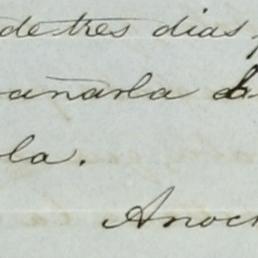 de tres dias
añarla
la.
Anoc